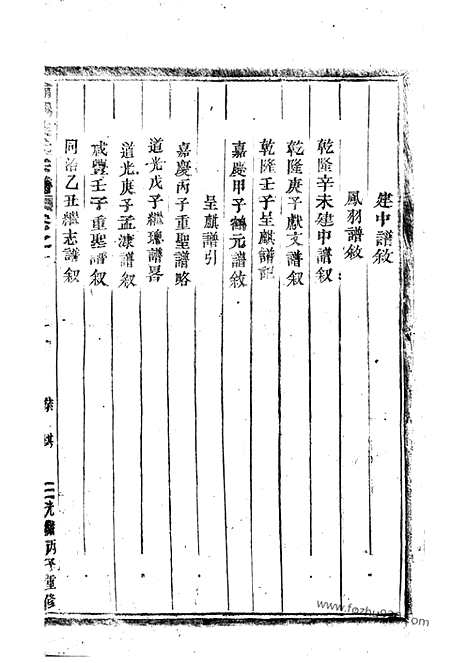 建中譜敘
鳳羽譜敘
乾隆辛未建中譜叙
乾隆庚子獻文譜叙
乾隆壬子呈麒譜記
嘉慶甲子鶴元譜敘
呈麒譜引
嘉慶丙子重聖譜略
道光戊子繼璁譜畧
道光庚子孟漮譜叙
咸豐壬子重聖譜叙
同治乙丑繼志譜叙
光緒丙子重修
www.fozhu920.com